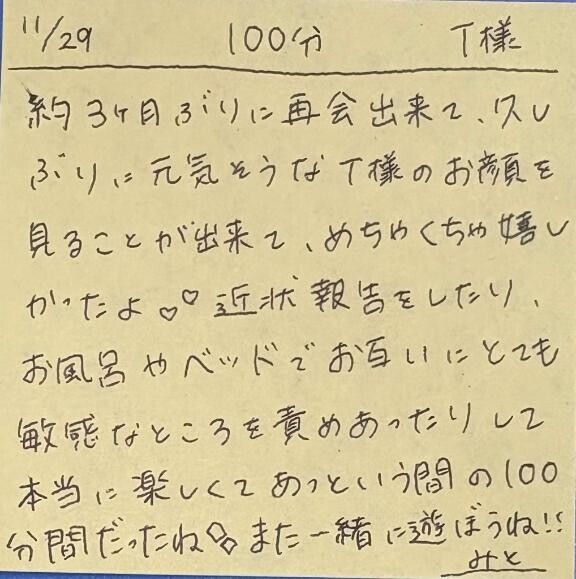 11/29 100分 T様
約3ヶ月ぶりに再会出来て、久し
ぶりに元気そうなT様のお顔を
見ることが出来て、めちゃくちゃ嬉し
かったよ♡♡近状報告をしたり、
お風呂やベッドでお互いにとても
敏感なところを責めあったりして
本当に楽しくてあっという間の100
分間だったね♡♡また一緒に遊ぼうね!!
みと